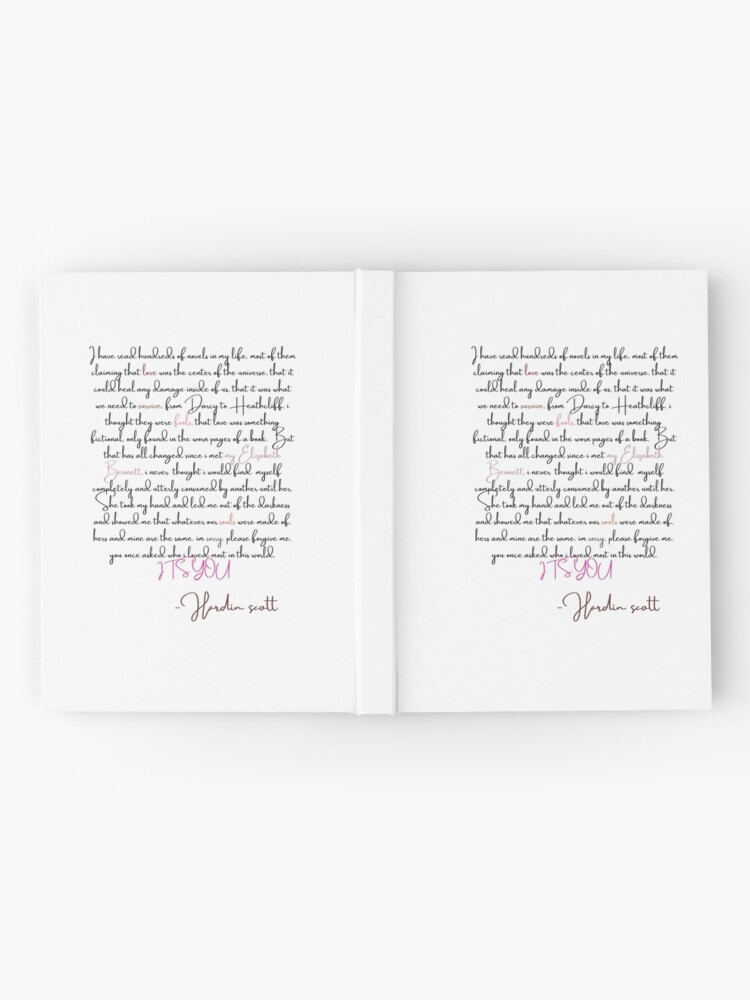 I have read hundreds of novels in my life, most of them
claiming that love was the center of the universe. that it
could heal any damage inside of us. that it was what
we need to survive. from Darcy to Heathcliff, i
thought they were fools. that love was something
fictional, only found in the worn pages of a book. But
that has all changed since i met my Elizabeth
Bennett. i never thought i would find myself
completely and utterly consumed by another until her.
She took my hand and led me out of the darkness
and showed me that whatever our souls were made of,
hers and mine are the same. im sorry, please forgive me.
you once asked who i loved most in this world.
ITS YOU
-Hardin scott
I have read hundreds of novels in my life, most of them
claiming that love was the center of the universe. that it
could heal any damage inside of us. that it was what
we need to survive. from Darcy to Heathcliff, i
thought they were fools. that love was something
fictional, only found in the worn pages of a book. But
that has all changed since i met my Elizabeth
Bennett. i never thought i would find myself
completely and utterly consumed by another until her.
She took my hand and led me out of the darkness
and showed me that whatever our souls were made of,
hers and mine are the same. im sorry, please forgive me.
you once asked who i loved most in this world.
ITS YOU
-Hardin scott